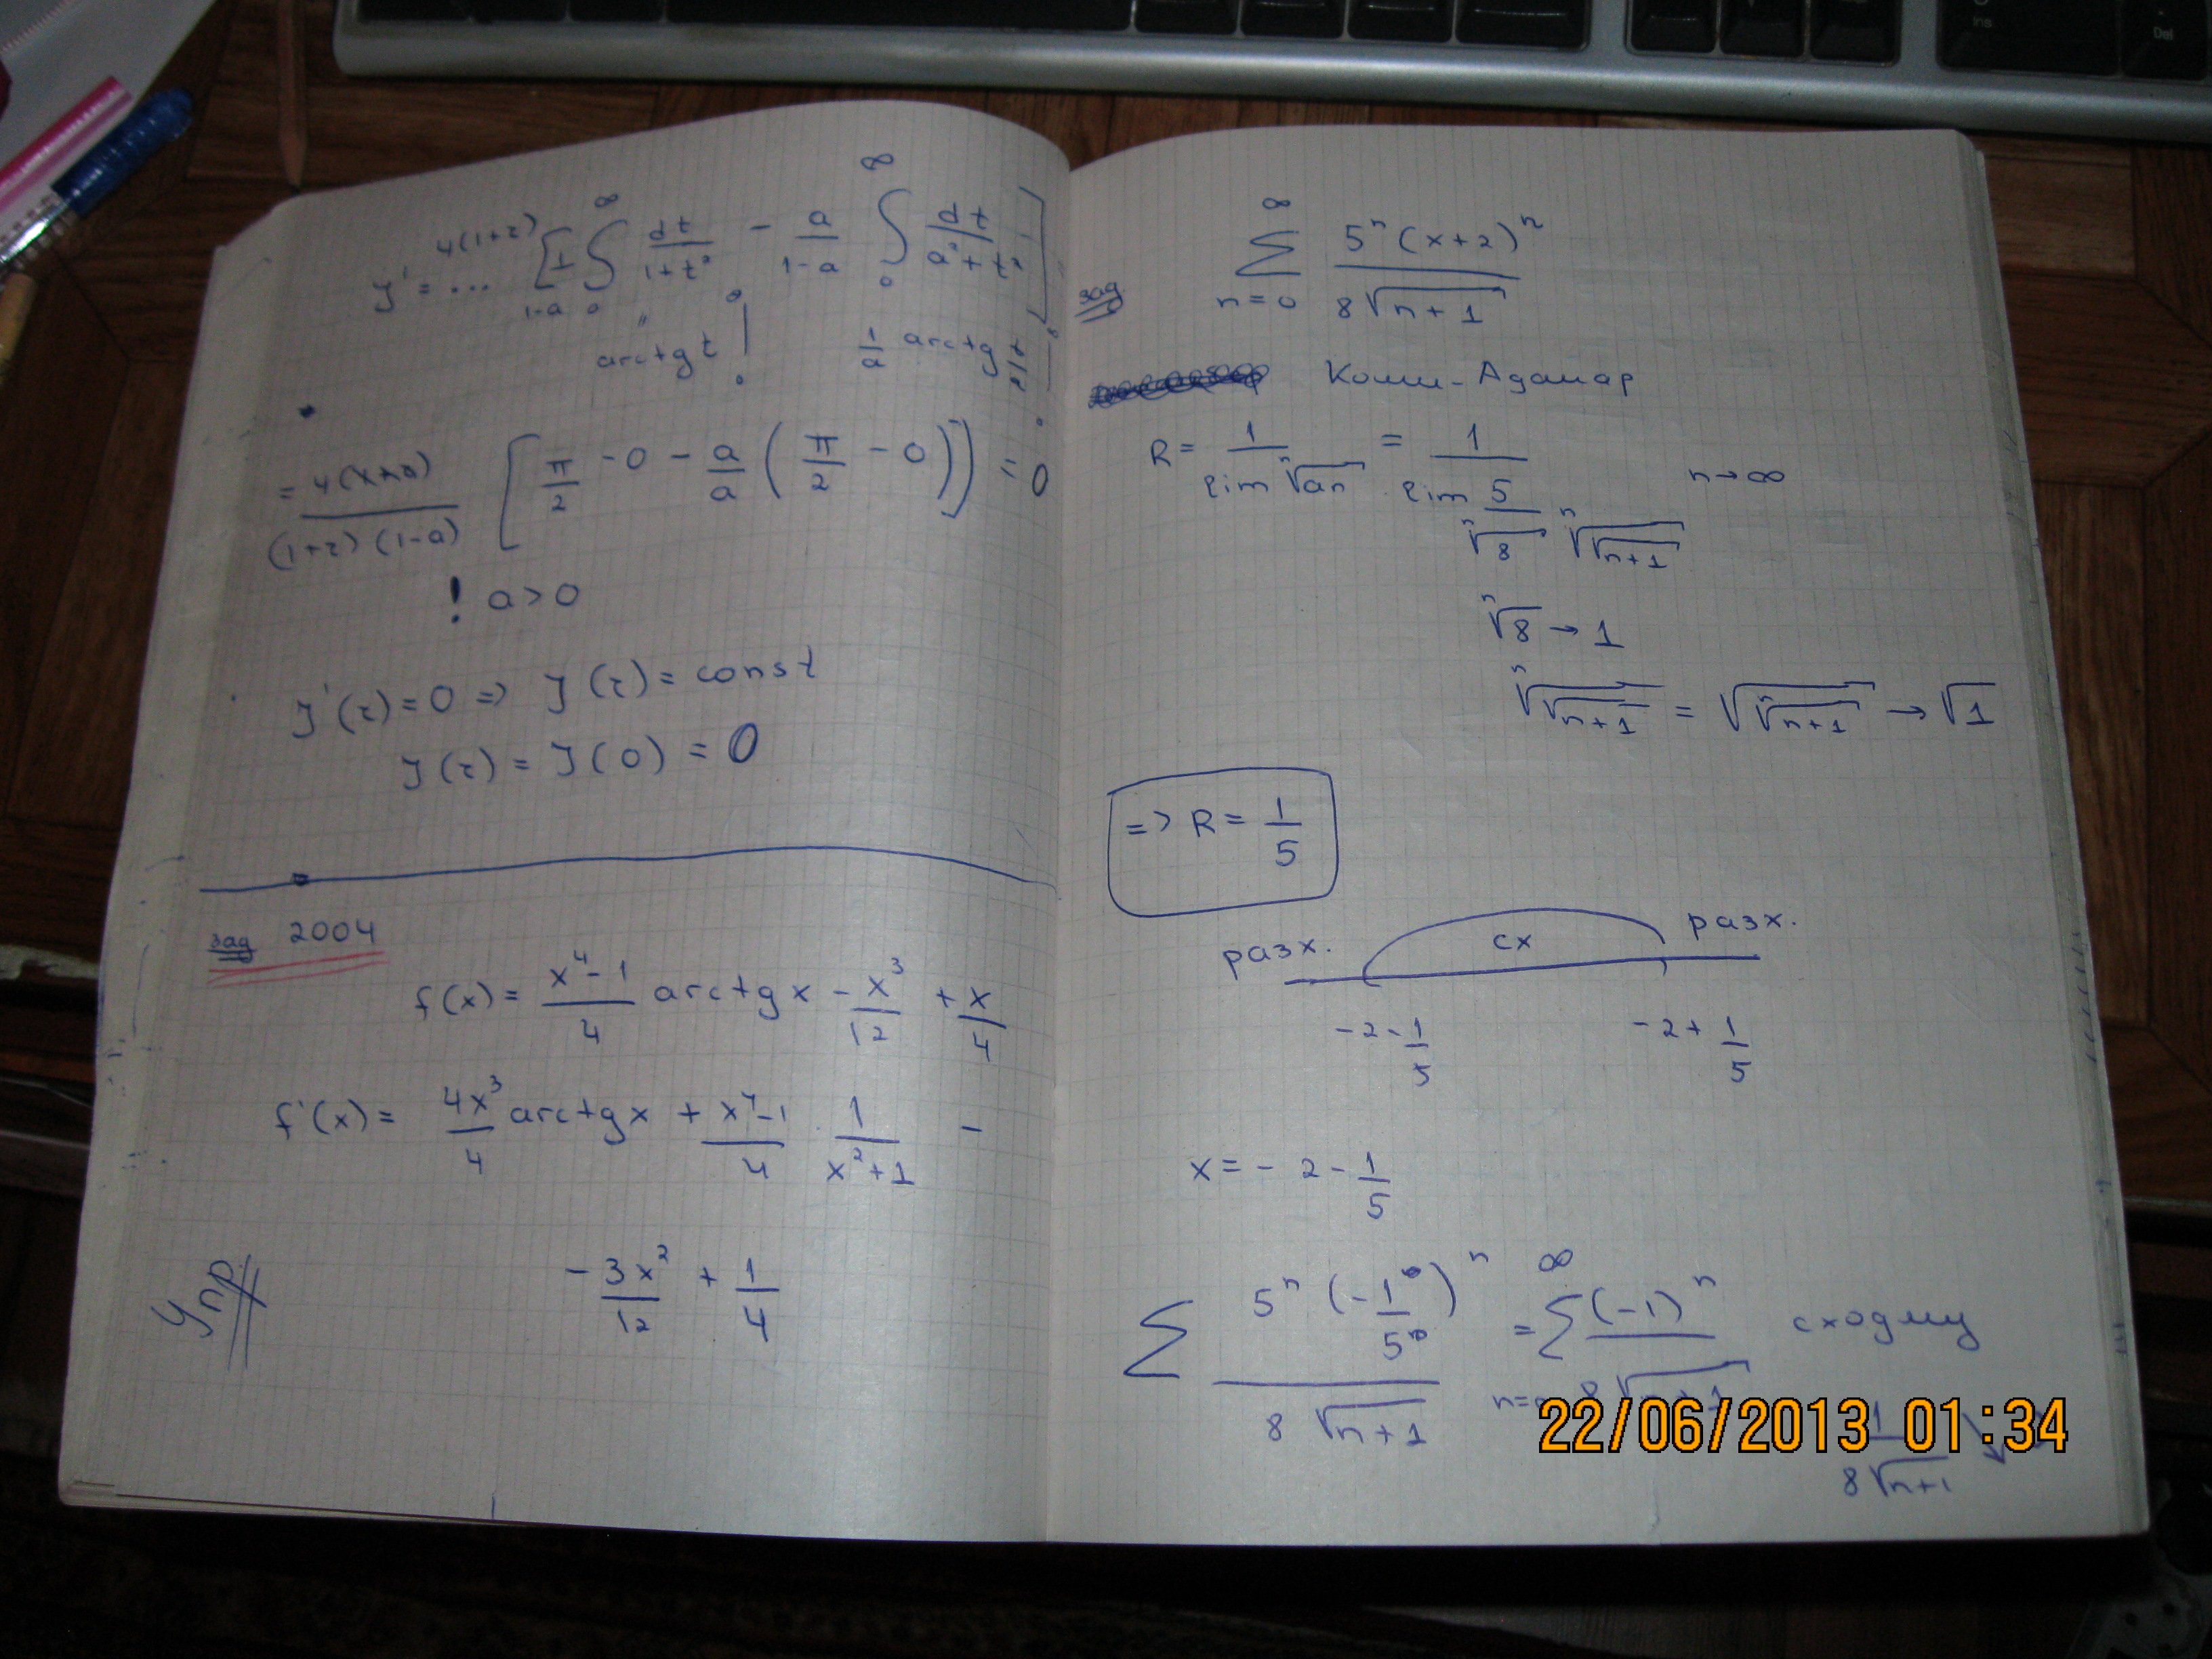 J' = ... 4(1+z) [1/(1-a) ∫₀^∞ dt/(1+t²) - a/(1-a) ∫₀^∞ dt/(a²+t²)]
" arctg t |₀^∞ 1/a arctg t/a |₀^∞
= 4(1+z)/((1+z)(1-a)) [π/2 - 0 - a/a (π/2 - 0)] = 0
! a > 0
J'(z) = 0 => J(z) = const
J(z) = J(0) = 0
зад 2004
f(x) = (x⁴-1)/4 arctg x - x³/12 + x/4
f'(x) = 4x³/4 arctg x + (x⁴-1)/4 · 1/(x²+1) -
- 3x²/12 + 1/4
Упр
зад ∑_{n=0}^∞ 5ⁿ(x+2)ⁿ/(8√(n+1))
Коши-Адамар
R = 1/(lim ⁿ√an) = 1/(lim 5/(ⁿ√8 ⁿ√(√(n+1)))) n→∞
ⁿ√8 → 1
ⁿ√(√(n+1)) = √(ⁿ√(n+1)) → √1
=> R = 1/5
разх. сх разх.
-2-1/5 -2+1/5
x = -2-1/5
∑ 5ⁿ(-1/5)ⁿ/(8√(n+1)) = ∑_{n=0}^∞ (-1)ⁿ/(8√(n+1))
1/(8√(n+1)) ↘
22/06/2013 01:34